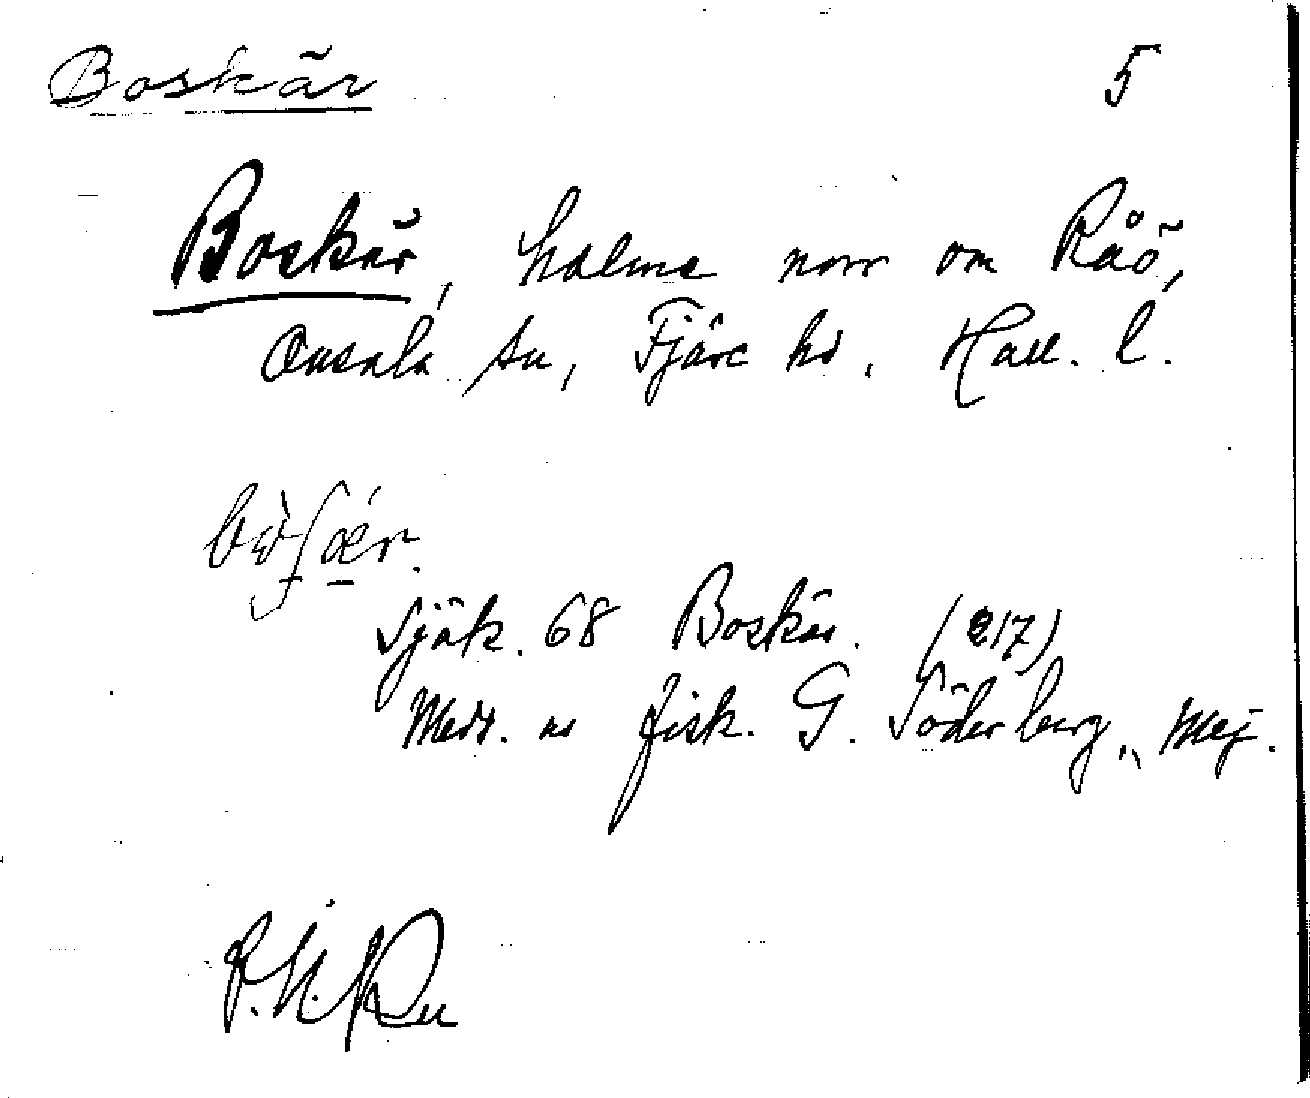 Boskär 5
Boskär, holme norr om Råö,
Onsala sn, Fjäre hd, Hall. l.
Sjök. 68 Boskär. (217)
Medd. av fisk. G. Söderberg,